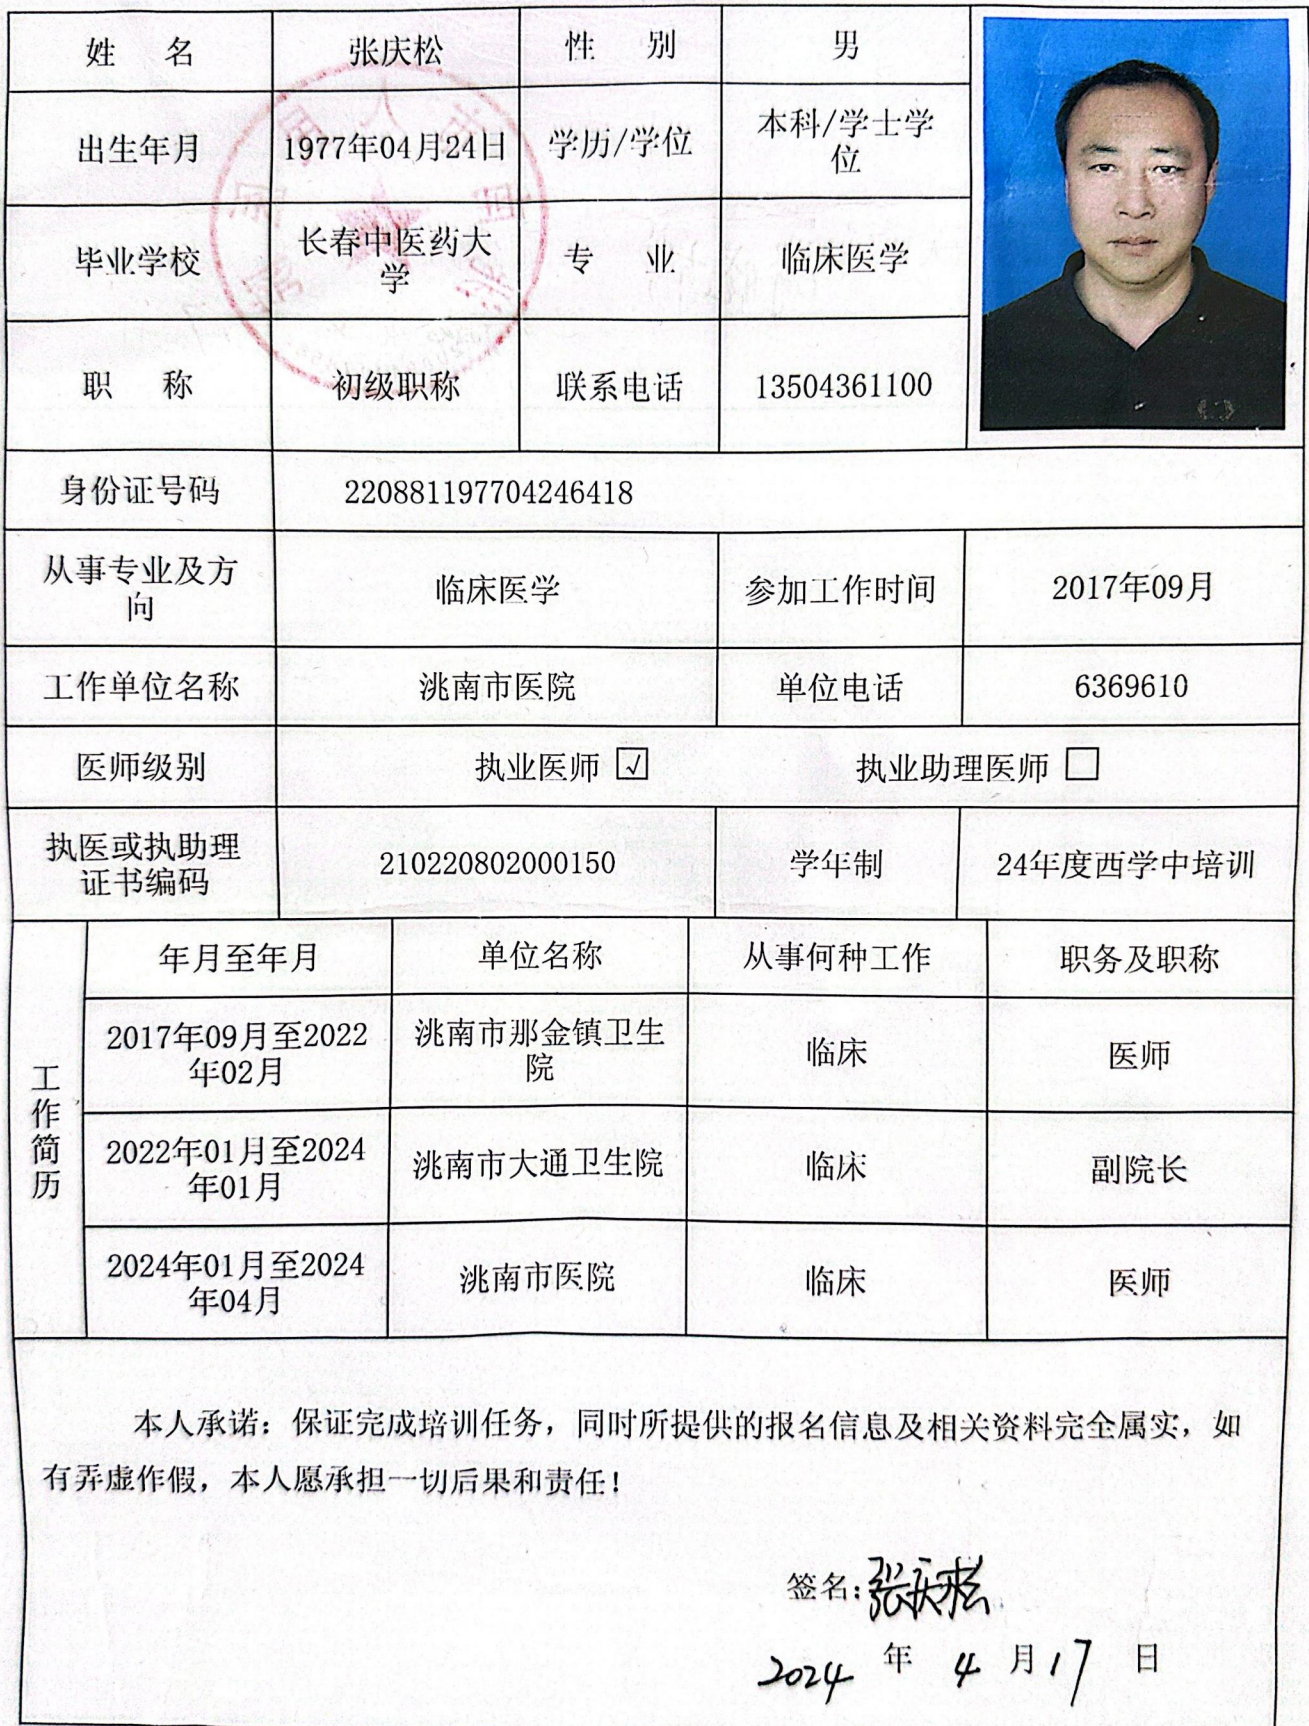 姓 名 张庆松 性 别 男
出生年月 1977年04月24日 学历/学位 本科/学士学
位
毕业学校 长春中医药大
学 专 业 临床医学
职 称 初级职称 联系电话 13504361100
身份证号码 220881197704246418
从事专业及方
向 临床医学 参加工作时间 2017年09月
工作单位名称 洮南市医院 单位电话 6369610
医师级别 执业医师 ☑ 执业助理医师 □
执医或执助理
证书编码 210220802000150 学年制 24年度西学中培训
工作简历
年月至年月 单位名称 从事何种工作 职务及职称
2017年09月至2022
年02月 洮南市那金镇卫生
院 临床 医师
2022年01月至2024
年01月 洮南市大通卫生院 临床 副院长
2024年01月至2024
年04月 洮南市医院 临床 医师
本人承诺：保证完成培训任务，同时所提供的报名信息及相关资料完全属实，如
有弄虚作假，本人愿承担一切后果和责任！
签名:张庆松
2024 年 4 月 17 日